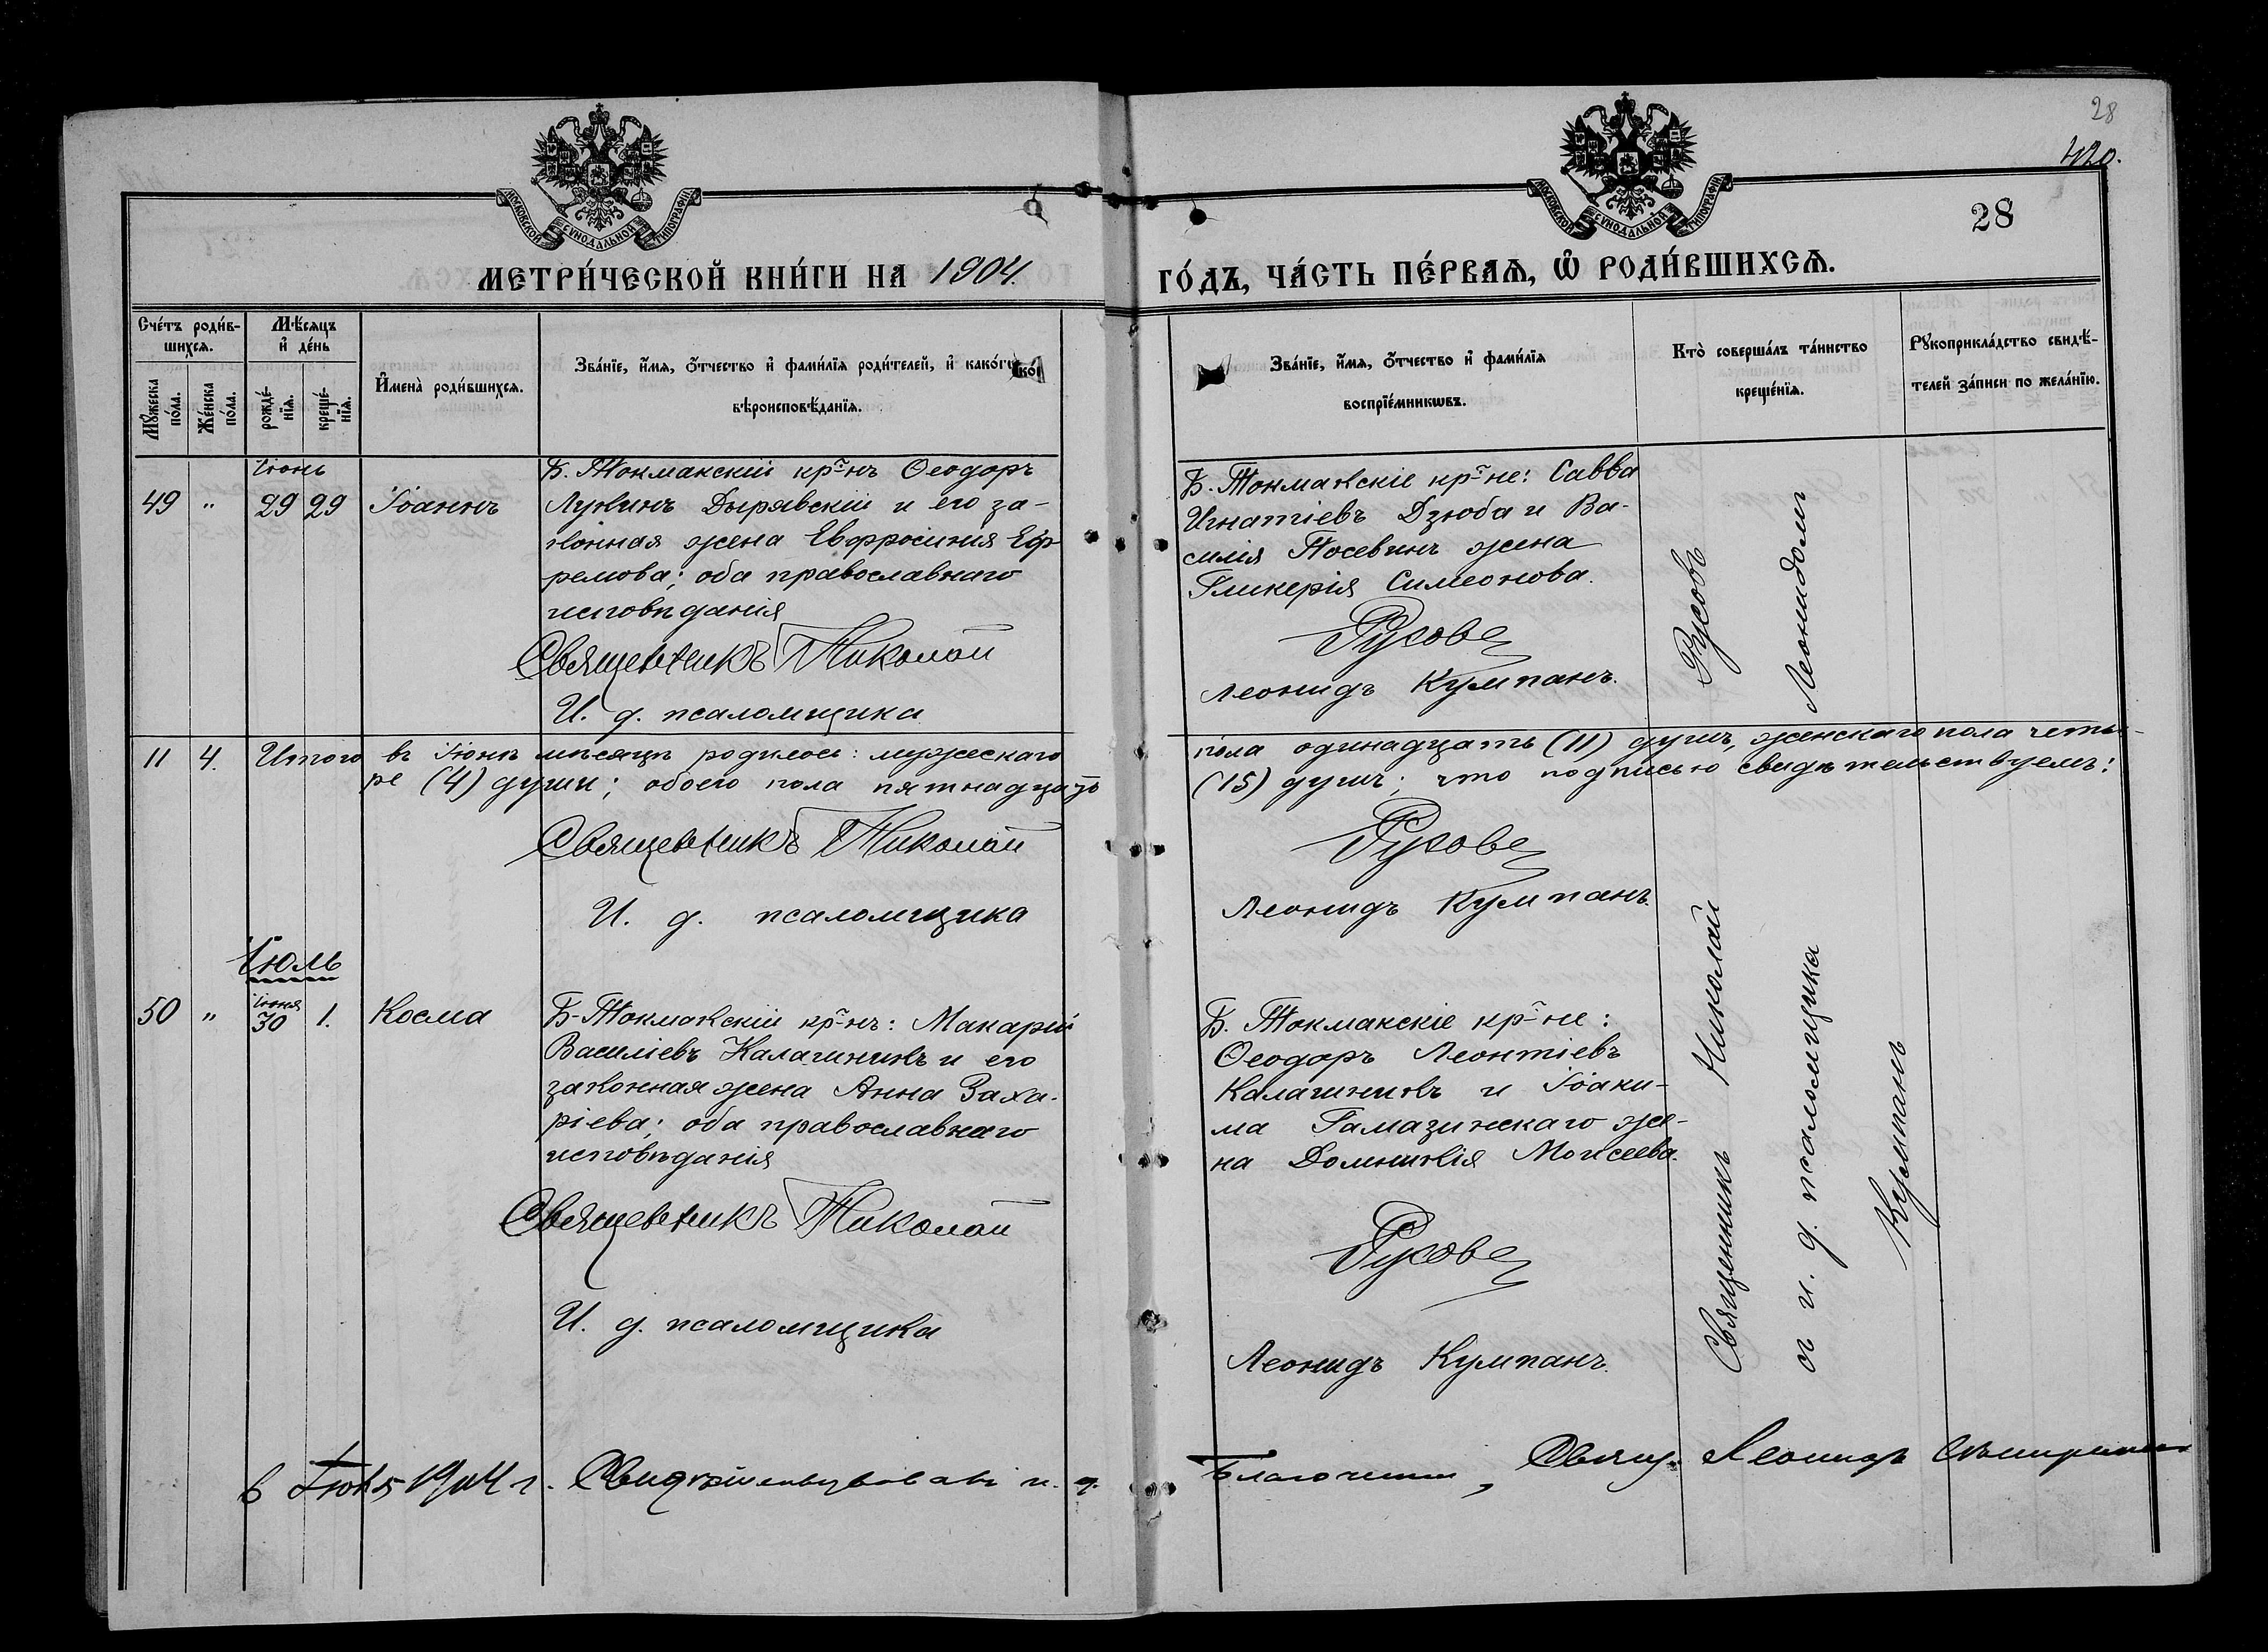 28
420.
МОСКОВСКОЙ СѴНОДАЛЬНОЙ ТИПОГРАФІИ
МОСКОВСКОЙ СѴНОДАЛЬНОЙ ТИПОГРАФІИ
28
МЕТРИ́ЧЕСКОЙ КНИ́ГИ НА 1904.
ГО́ДЪ, ЧА́СТЬ ПЕ́РВАѦ, Ѽ РОДИ́ВШИХСѦ.
Сче́тъ роди́в-
шихсѧ.
Мѣ́сѧцъ
и҆ де́нь
Мꙋ́жеска
по́ла.
Же́нска
по́ла.
рожде́-
нїѧ.
креще́-
нїѧ.
И҆мена̀ роди́вшихсѧ.
Зва́нїе, и҆́мѧ, ѻ҆́тчество и҆ фами́лїѧ роди́телей, и҆ како́гѡ
вѣроисповѣ́данїѧ.
Зва́нїе, и҆́мѧ, ѻ҆́тчество и҆ фами́лїѧ
воспрїе́мникѡвъ.
Кто̀ соверша́лъ та́инство
креще́нїѧ.
Рꙋкоприкла́дство свидѣ́-
телей за́писи по жела́нїю.
Іюнь
49 " 29 29 Іоаннъ
Б. Токмакскій кр-нъ Ѳеодоръ
Лукинъ Дырявскій и его за-
конная жена Евфросинія Еф-
ремова; оба православнаго
исповѣданія
Священникъ Николай
И. д. псаломщика
Б. Токмакскіе кр-не: Савва
Игнатіевъ Дзюба и Ва-
силія Посевинъ жена
Гликерія Симеонова.
Русовъ
Леонидъ Кумпанъ.
11 4. Итого въ Іюнѣ мѣсяцѣ родилось: мужескаго
пола одинадцать (11) душъ, женскаго пола четы-
ре (4) души; обоего пола пятнадцать
(15) душъ; что подписью свидѣтельствуемъ:
Священникъ Николай
Русовъ
И. д. псаломщика
Леонидъ Кумпанъ.
Іюль
Іюня
50 " 30 1. Косма
Б-Токмакскій кр-нъ: Макарій
Василіевъ Калашникъ и его
законная жена Анна Заха-
ріева; оба православнаго
исповѣданія
Священникъ Николай
И. д. псаломщика
Б. Токмакскіе кр-не:
Ѳеодоръ Леонтіевъ
Калашникъ и Іоаки-
ма Гамазинскаго же-
на Домникія Моисеева.
Русовъ
Леонидъ Кумпанъ.
Священникъ Николай Русовъ
съ и. д. псаломщика Леонидомъ
Кумпанъ
6 1904 г. Свидѣтельствовалъ и. д.
Благочинный, Свящ. Леонидъ